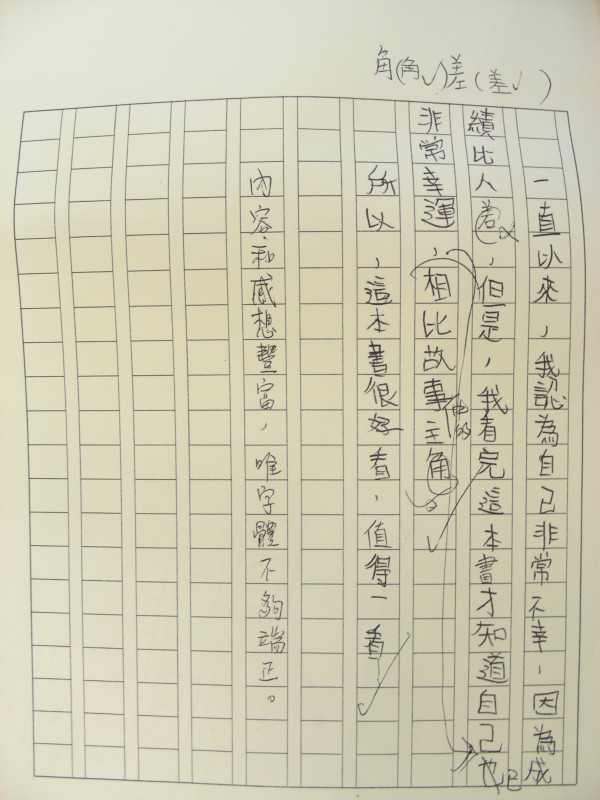 角(角✓)差(差✓)
一直以來，我認為自己非常不幸，因為成
績比人差，但是，我看完這本書才知道自己也
非常幸運，相比故事主角。
他的
所以，這本書很好看，值得一看
內容和感想豐富，唯字體不夠端正。